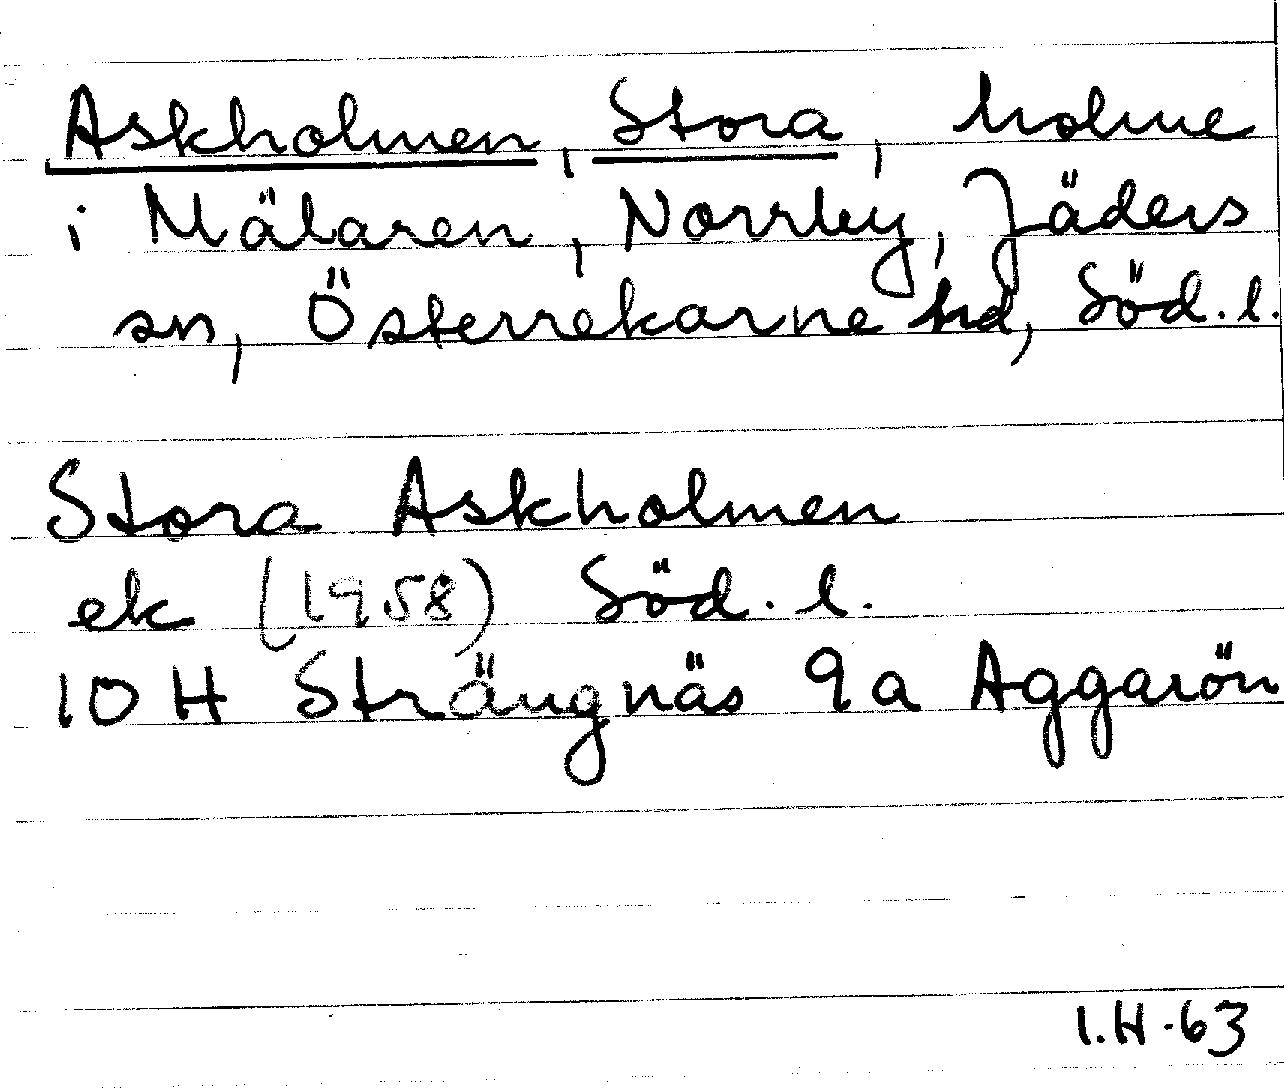 Askholmen, Stora, holme
i Mälaren, Norrby, Jäders
sn, Österrekarne hd, Söd. l.
Stora Askholmen
ek (1958) Söd. l.
10 H Strängnäs 9a Aggarön
I.H-63